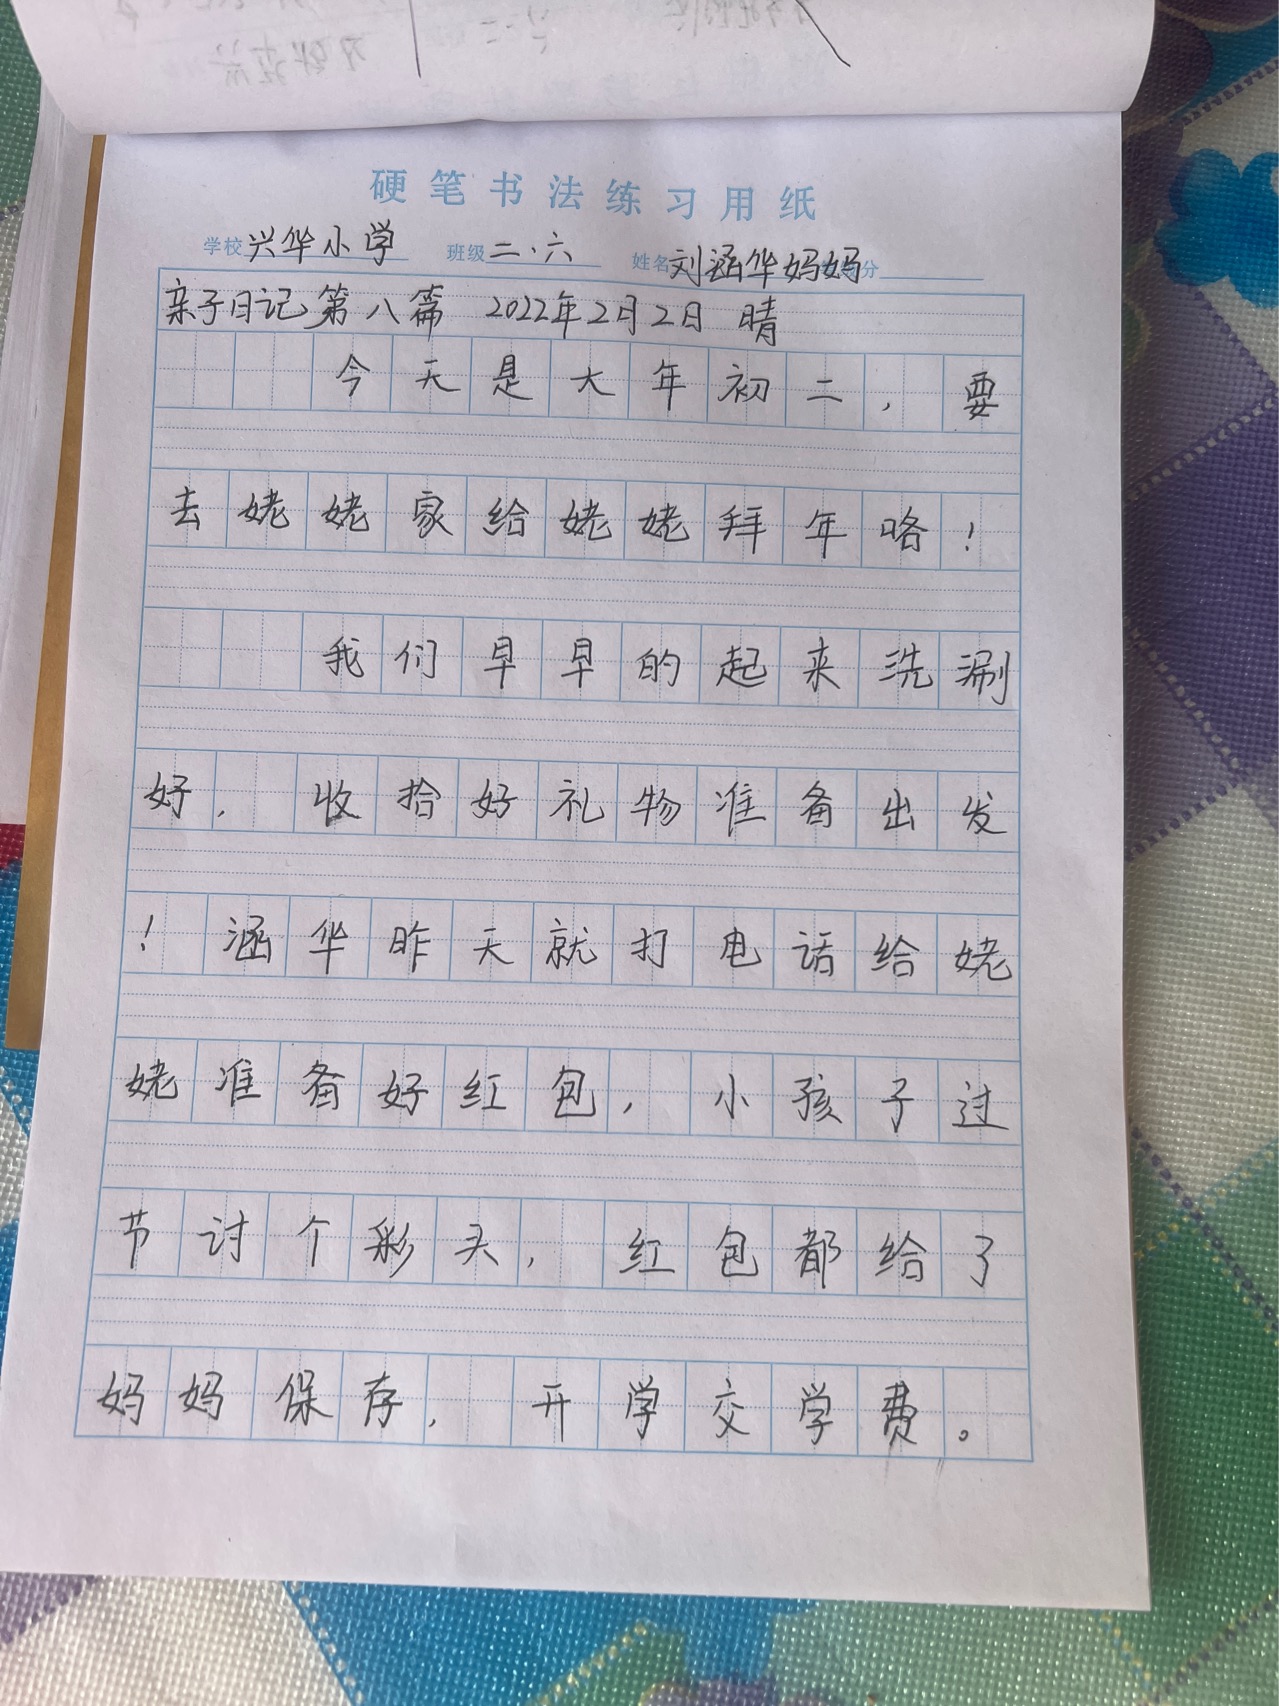 硬笔书法练习用纸
学校 兴华小学 班级 二.六 姓名 刘涵华妈妈 分
亲子日记第八篇 2022年2月2日 晴
今天是大年初二，要
去姥姥家给姥姥拜年咯！
我们早早的起来洗涮
好，收拾好礼物准备出发
！涵华昨天就打电话给姥
姥准备好红包，小孩子过
节讨个彩头，红包都给了
妈妈保存，开学交学费。